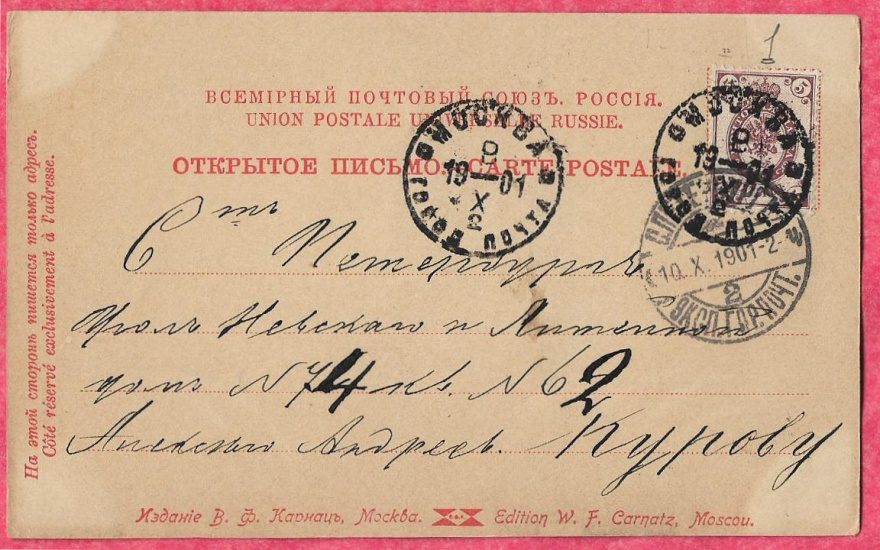 1
5
ВСЕМІРНЫЙ ПОЧТОВЫЙ СОЮЗЪ. РОССІЯ.
UNION POSTALE UNIVERSELLE RUSSIE.
ОТКРЫТОЕ ПИСЬМО. CARTE POSTALE.
МОСКВА
19 X 01
2
ПОЧТА
МОСКВА
19 X 01
2
ПОЧТА
10. X. 1901-2
2
ЭКСП.ГОР.ПОЧТ.
С отъ Петербургъ
Уголъ Невскаго и Литейной
домъ N 74 кв. N 62
Андрее. Курову
На этой сторонѣ пишется только адресъ.
Côté réservé exclusivement à l'adresse.
Изданіе В. Ф. Карнацъ, Москва. Edition W. F. Carnatz, Moscou.